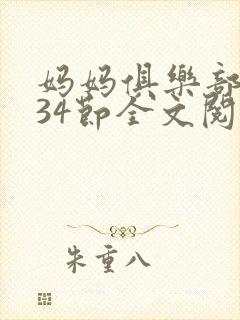 妈妈俱樂部
34節全文閱
朱重八